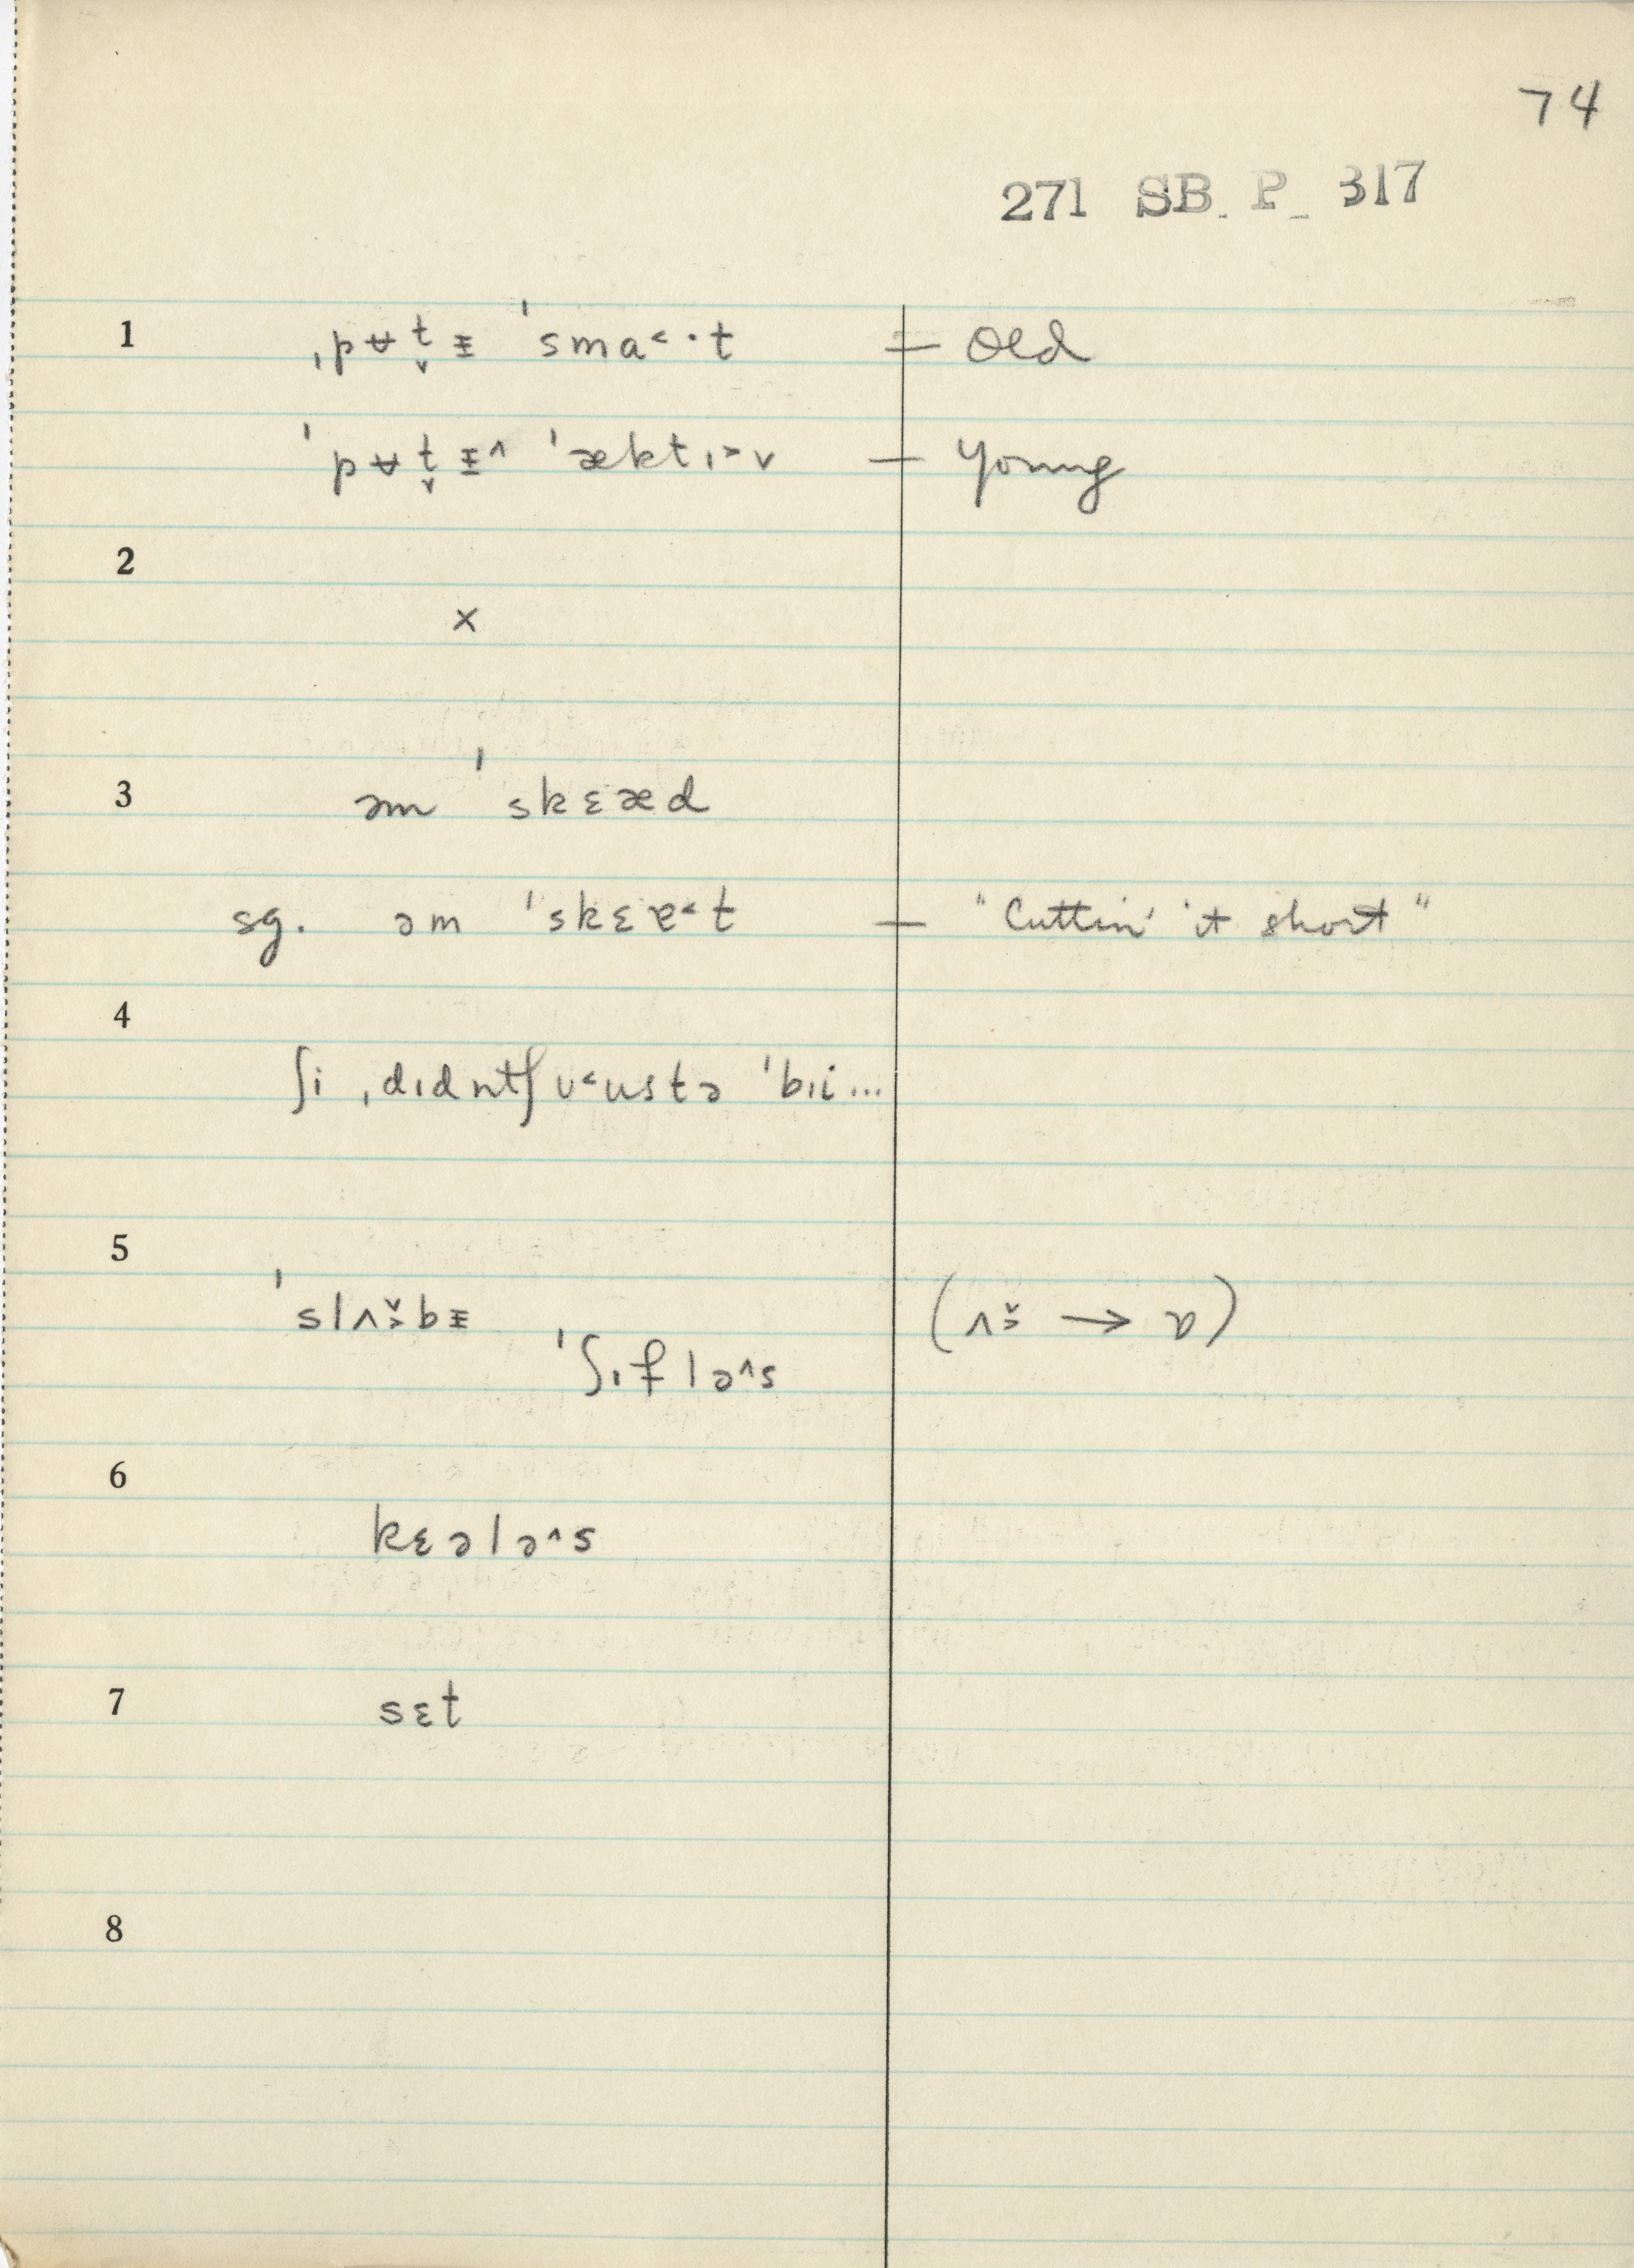 74
271 SB. P_ 317
1 ˌpʉt̬ᵻ ˈsma˂·t — Old
ˈpʉt̬ᵻ^ ˈæktɪ˃v — Young
2
×
3 əm ˈskɛæd
sg. əm ˈskɛɐ˂t — "Cuttin' it short"
4
ʃi ˌdɪdntʃ ʊ˂ustə ˈbɪi...
5
ˈslʌ̬˃bᵻ (ʌ̬˃ → ɒ)
ˈʃɪfləˆs
6
kɛələˆs
7 sɛt
8